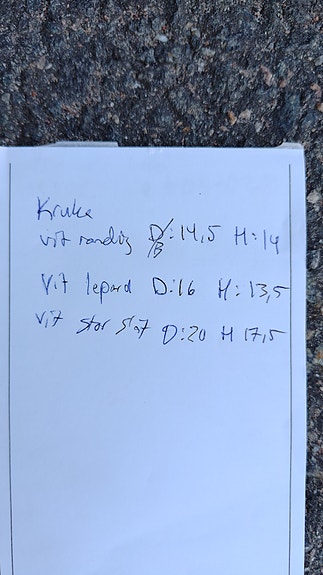 Kruka
vit randig D/B:14,5 H:14
Vit lepard D:16 H:13,5
Vit stor slät D:20 H 17,5